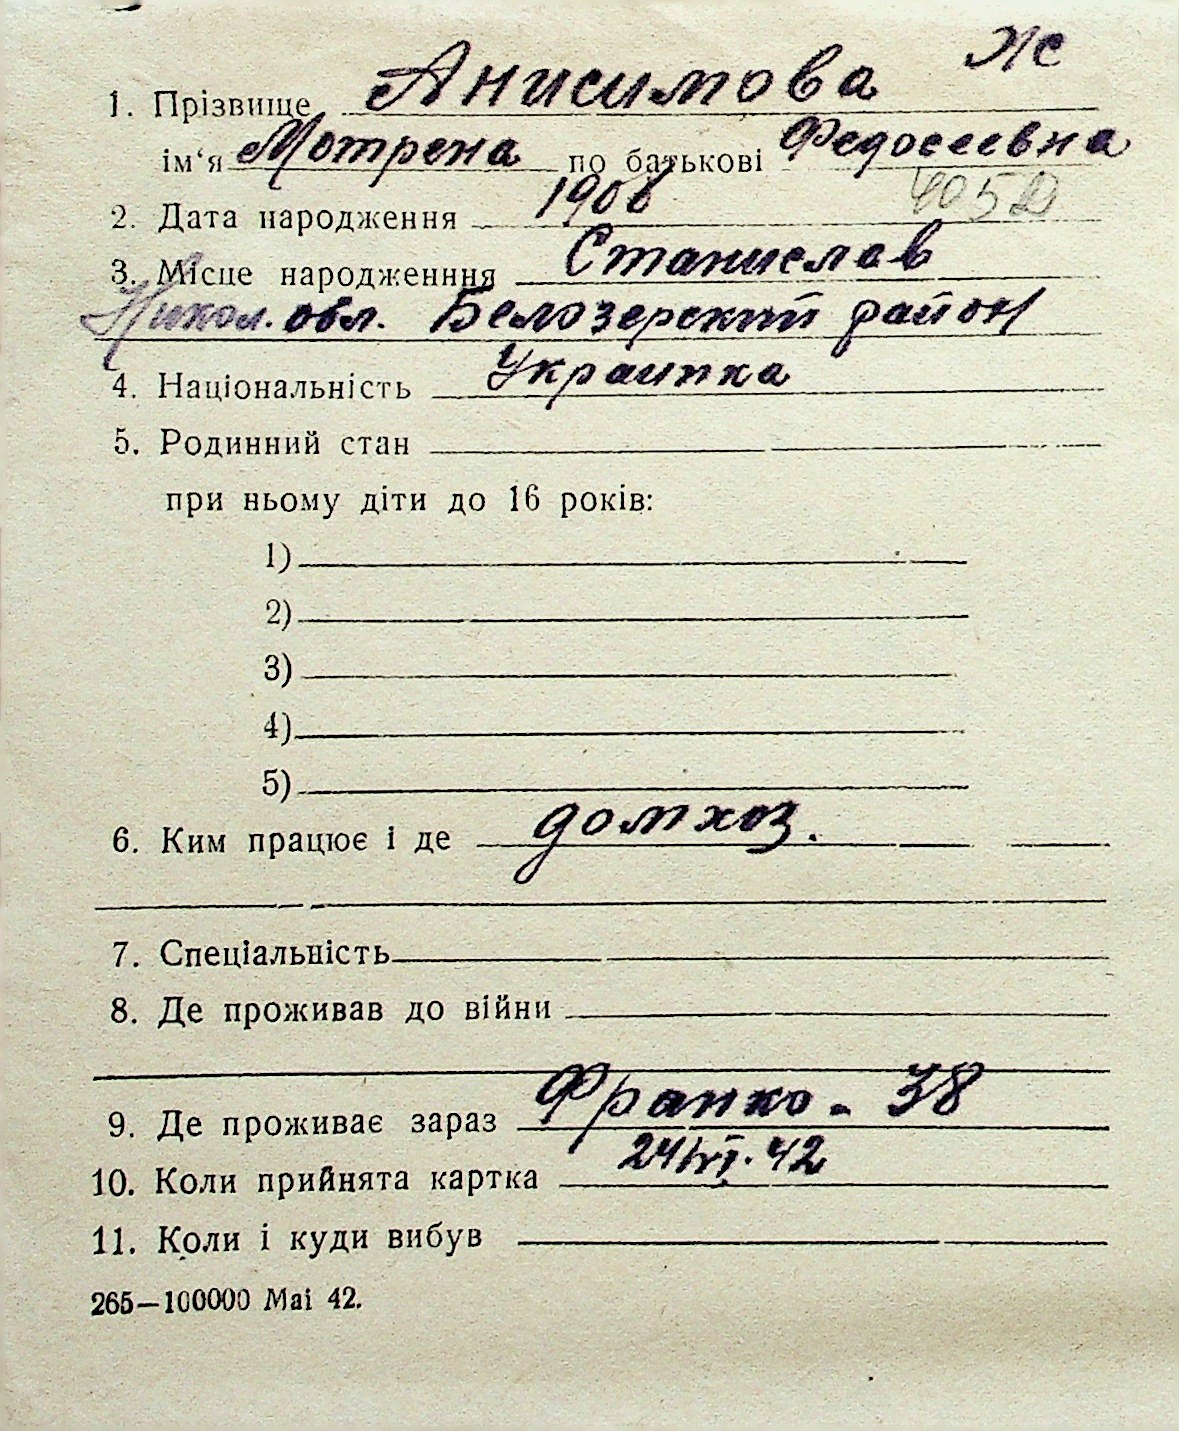 Же
1. Прізвище Анисимова
ім‘я Мотрена по батькові Федосеевна
2. Дата народження 1906 405
3. Місце народженння Станислав
Никол. обл. Белозерский район
4. Національність Украинка
5. Родинний стан
при ньому діти до 16 років:
1)
2)
3)
4)
5)
6. Ким працює і де домхоз.
7. Спеціальність
8. Де проживав до війни
9. Де проживає зараз Франко - 38
10. Коли прийнята картка 24/VI. 42
11. Коли і куди вибув
265—100000 Mai 42.